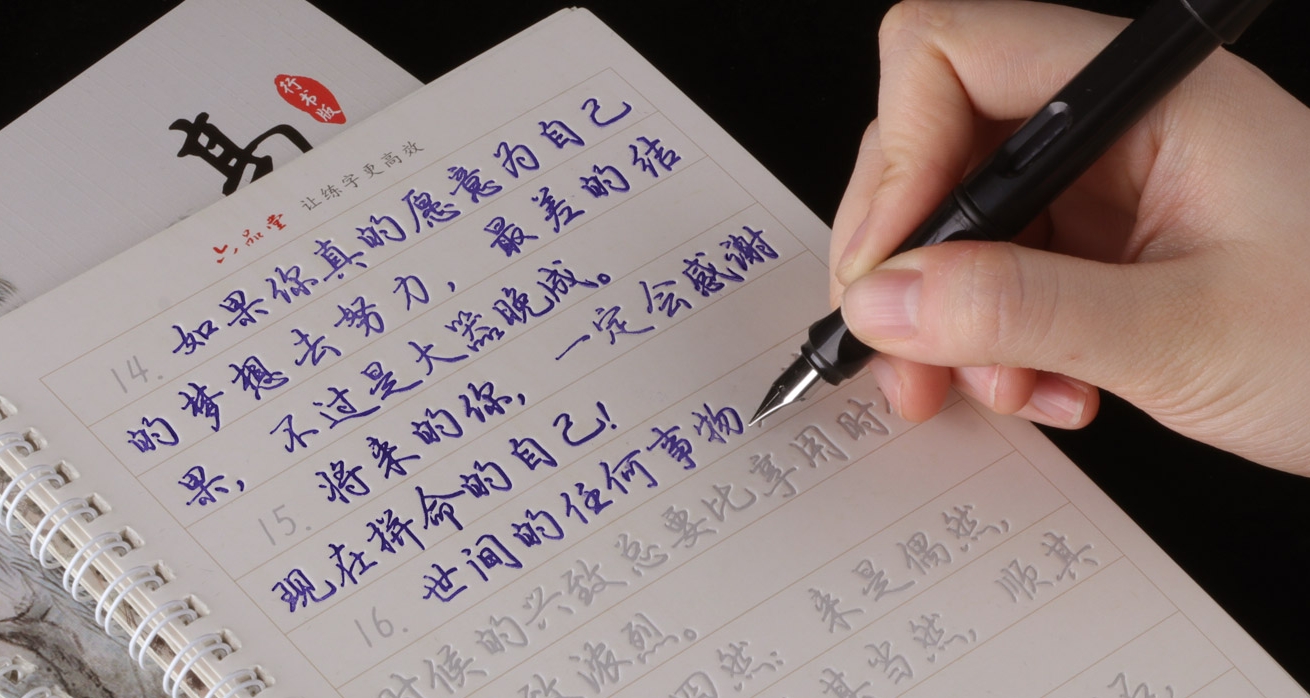 行书版
六品堂 让练字更高效
14. 如果你真的愿意为自己
的梦想去努力，最差的结
果，不过是大器晚成。
15. 将来的你，一定会感谢
现在拼命的自己！
16. 世间的任何事物
时候的兴致总要比享用时
致浓烈。
来是偶然，
其当然，顺其